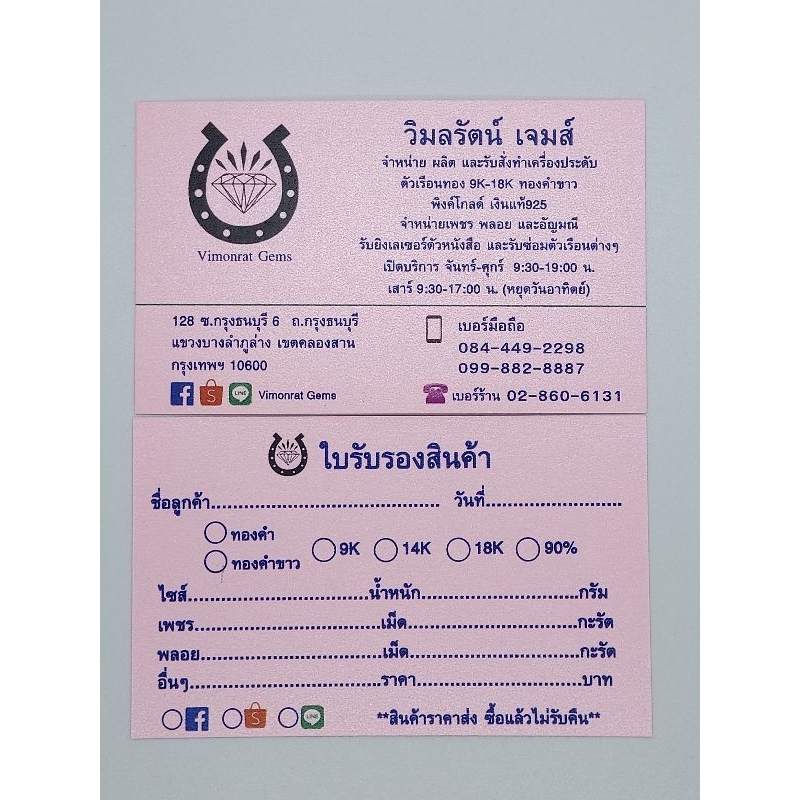 วิมลรัตน์ เจมส์
จำหน่าย ผลิต และรับสั่งทำเครื่องประดับ
ตัวเรือนทอง 9K-18K ทองคำขาว
พิงค์โกลด์ เงินแท้925
จำหน่ายเพชร พลอย และอัญมณี
รับยิงเลเซอร์ตัวหนังสือ และรับซ่อมตัวเรือนต่างๆ
เปิดบริการ จันทร์-ศุกร์ 9:30-19:00 น.
เสาร์ 9:30-17:00 น. (หยุดวันอาทิตย์)
Vimonrat Gems
128 ซ.กรุงธนบุรี 6 ถ.กรุงธนบุรี
แขวงบางลำภูล่าง เขตคลองสาน
กรุงเทพฯ 10600
S LINE Vimonrat Gems
เบอร์มือถือ
084-449-2298
099-882-8887
เบอร์ร้าน 02-860-6131
ใบรับรองสินค้า
ชื่อลูกค้า........................................ วันที่........................
ทองคำ
ทองคำขาว
9K 14K 18K 90%
ไซส์................................น้ำหนัก............................กรัม
เพชร.................................เม็ด..............................กะรัต
พลอย................................เม็ด..............................กะรัต
อื่นๆ..................................ราคา.............................บาท
S LINE **สินค้าราคาส่ง ซื้อแล้วไม่รับคืน**